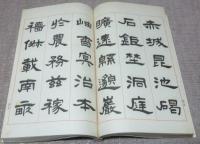 赤城昆池碣
石鉅埜洞庭
曠遠緜邈巖
岫杳冥治本
於農務茲稼
穡俶載南畝